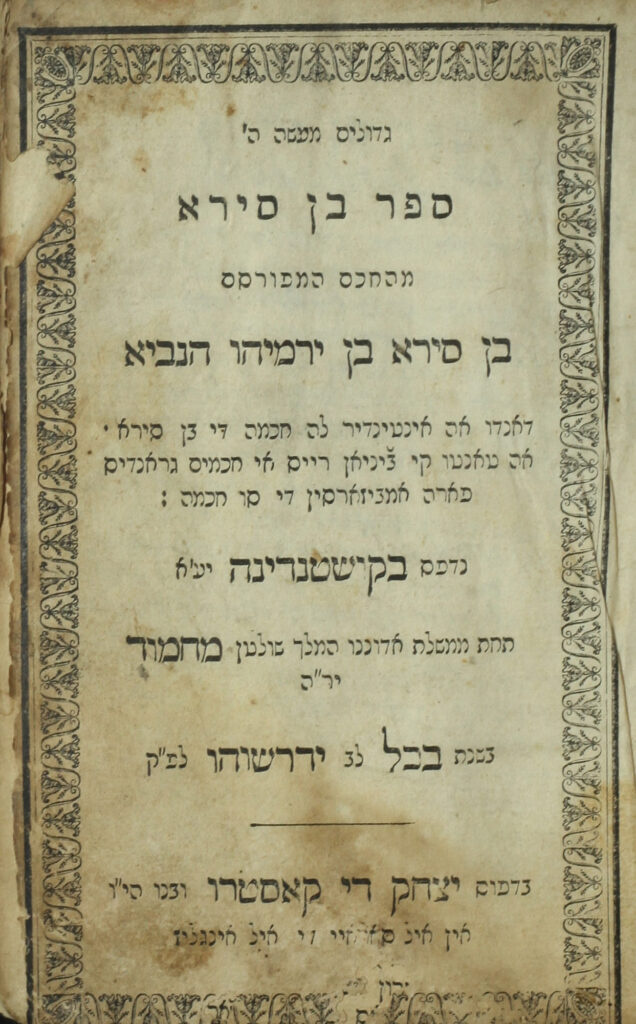 גדולים מעשה ה'
ספר בן סירא
מהחכם המפורסם
בן סירא בן ירמיהו הנביא
דאנדו אה אינטינדיר לה חכמה די בן סירא ·
אה טאנטו קי ב'יניאן רייס אי חכמים גראנדיס
פארה אמביזארסין די סו חכמה :
נדפס בקישטנדינה יע"א
תחת ממשלת אדוננו המלך שולטן מחמוד
יר"ה
בשנת בכל לב ידרשוהו לפ"ק
בדפוס יצחק די קאסטרו ובנו הי"ו
אין איל די איל אינגליז